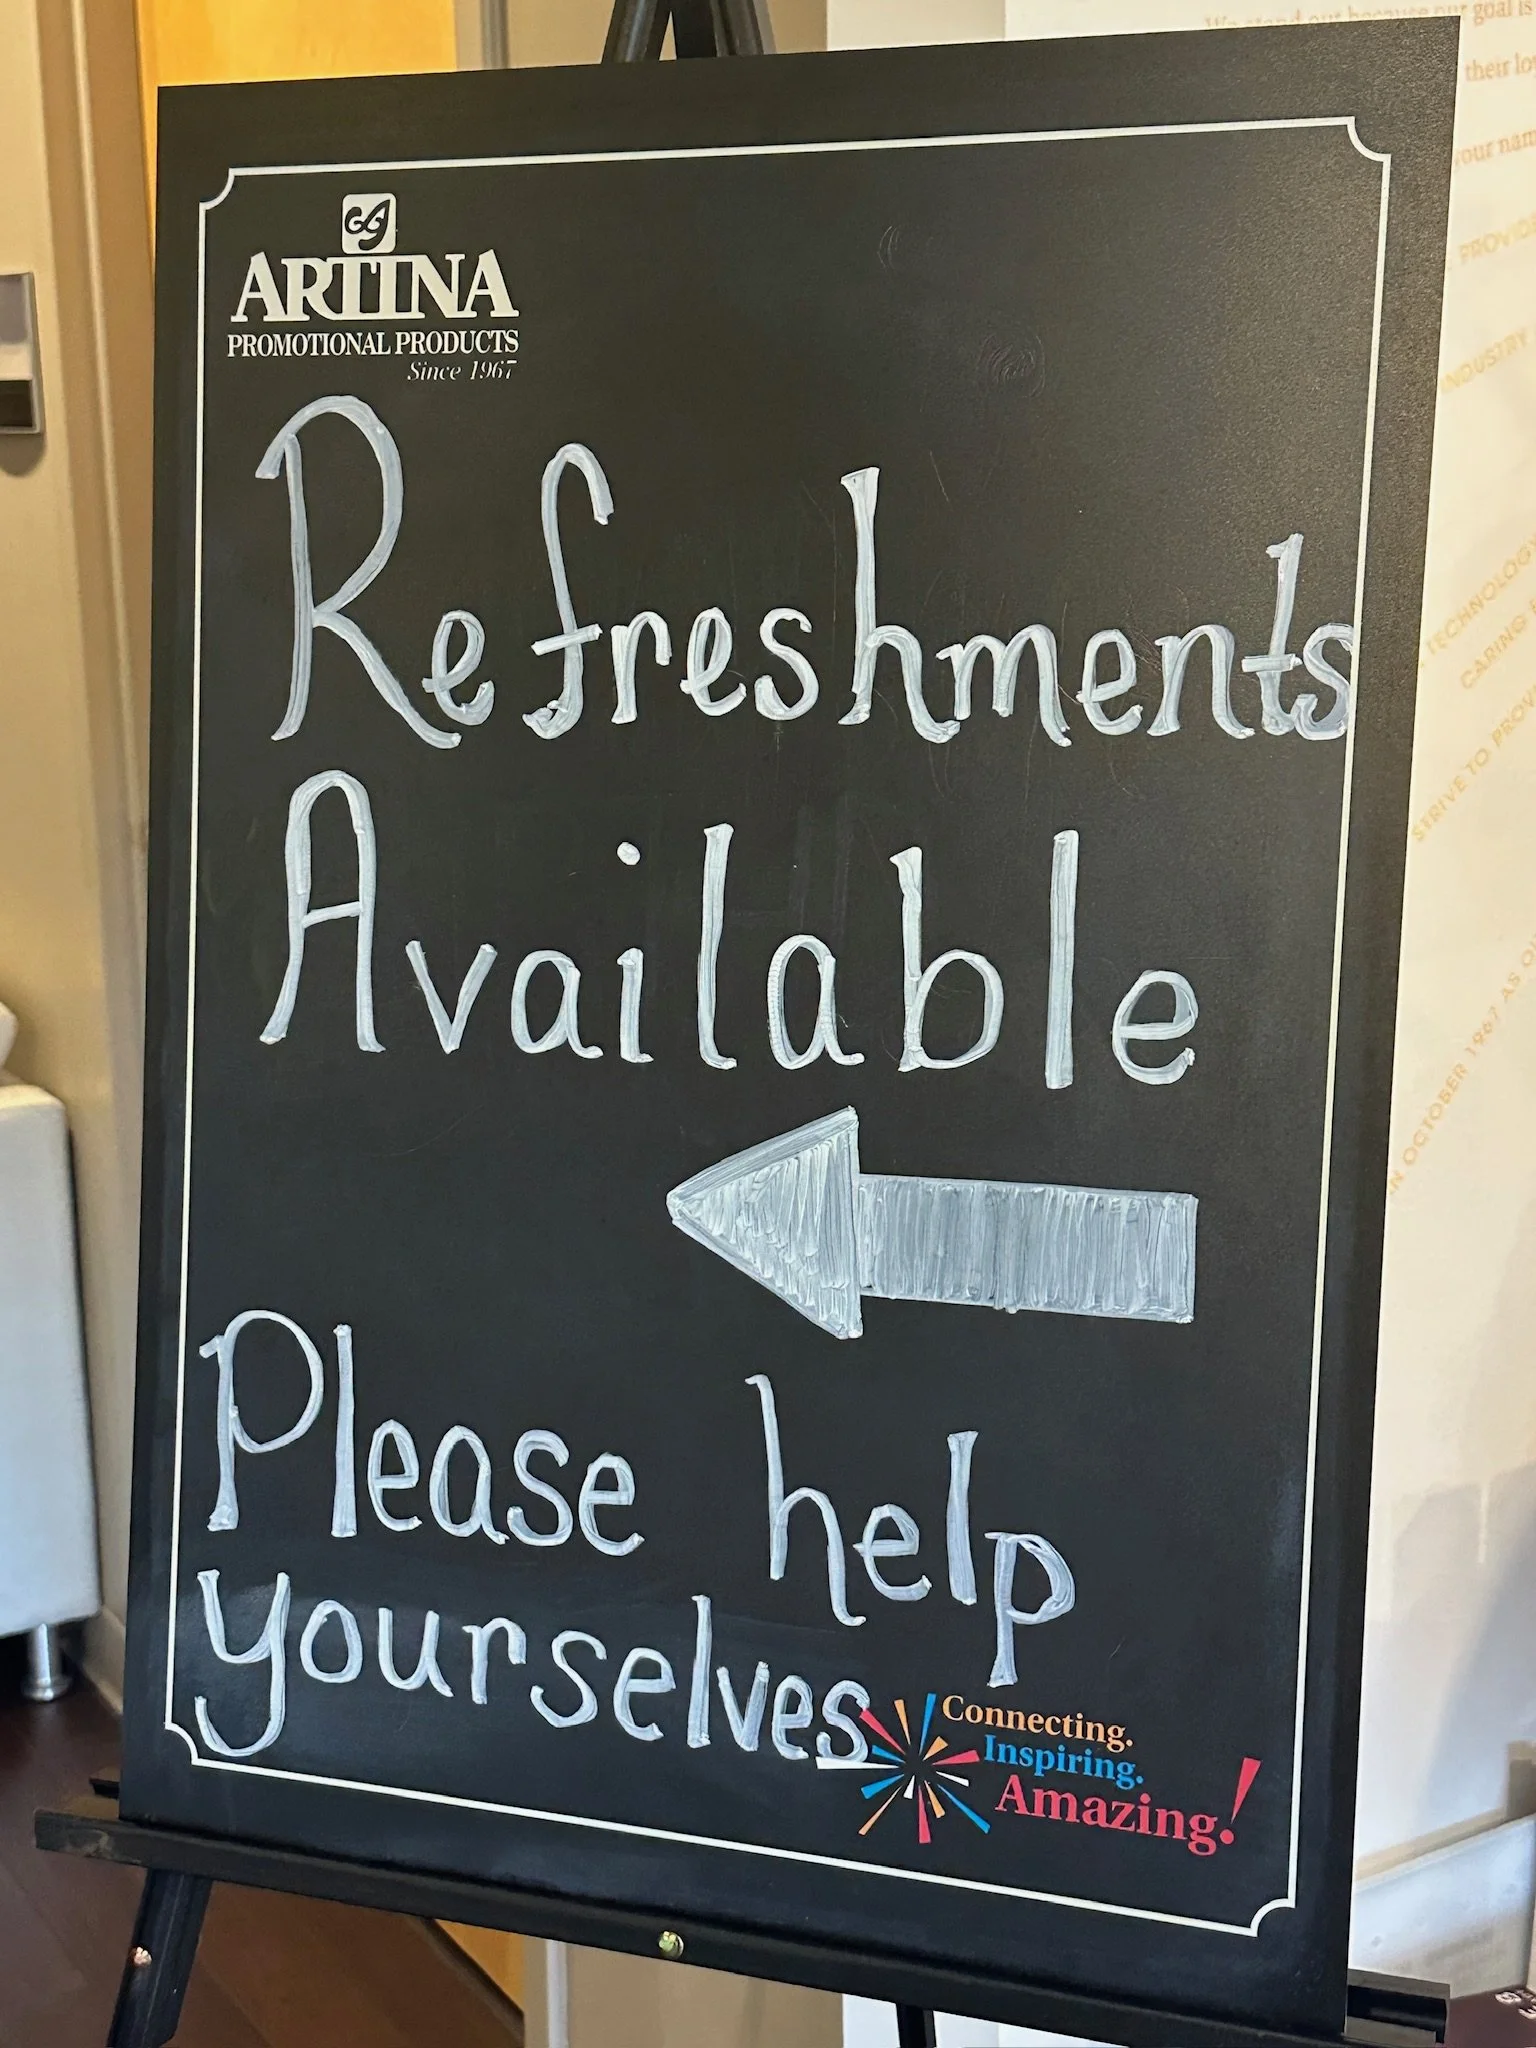 ARTINA
PROMOTIONAL PRODUCTS
Since 1967
Refreshments
Available
Please help
yourselves
Connecting.
Inspiring.
Amazing!
goal is
their
your
INDUSTRY
TECHNOLOGY
CARING
STRIVE TO
IN OCTOBER 1967 AS